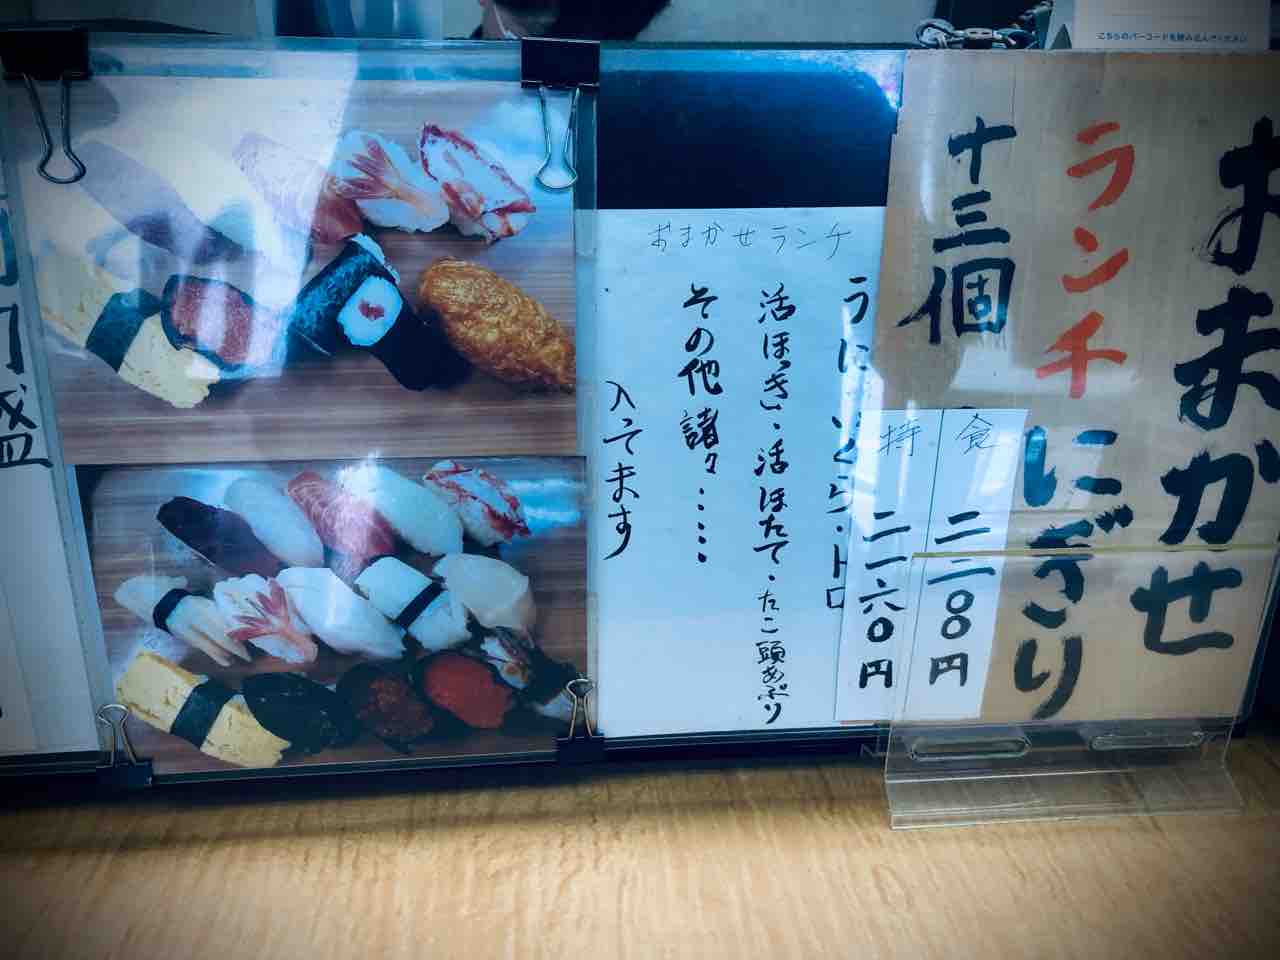 こちらのバーコードを読み込んでください
おまかせ
ランチにぎり
十三個
食 二二〇〇円
持 二一六〇円
おまかせランチ
うに・いくら・トロ
活ほっき・活ほたて・たこ頭あぶり
その他諸々・・・・・
入ってます
盛